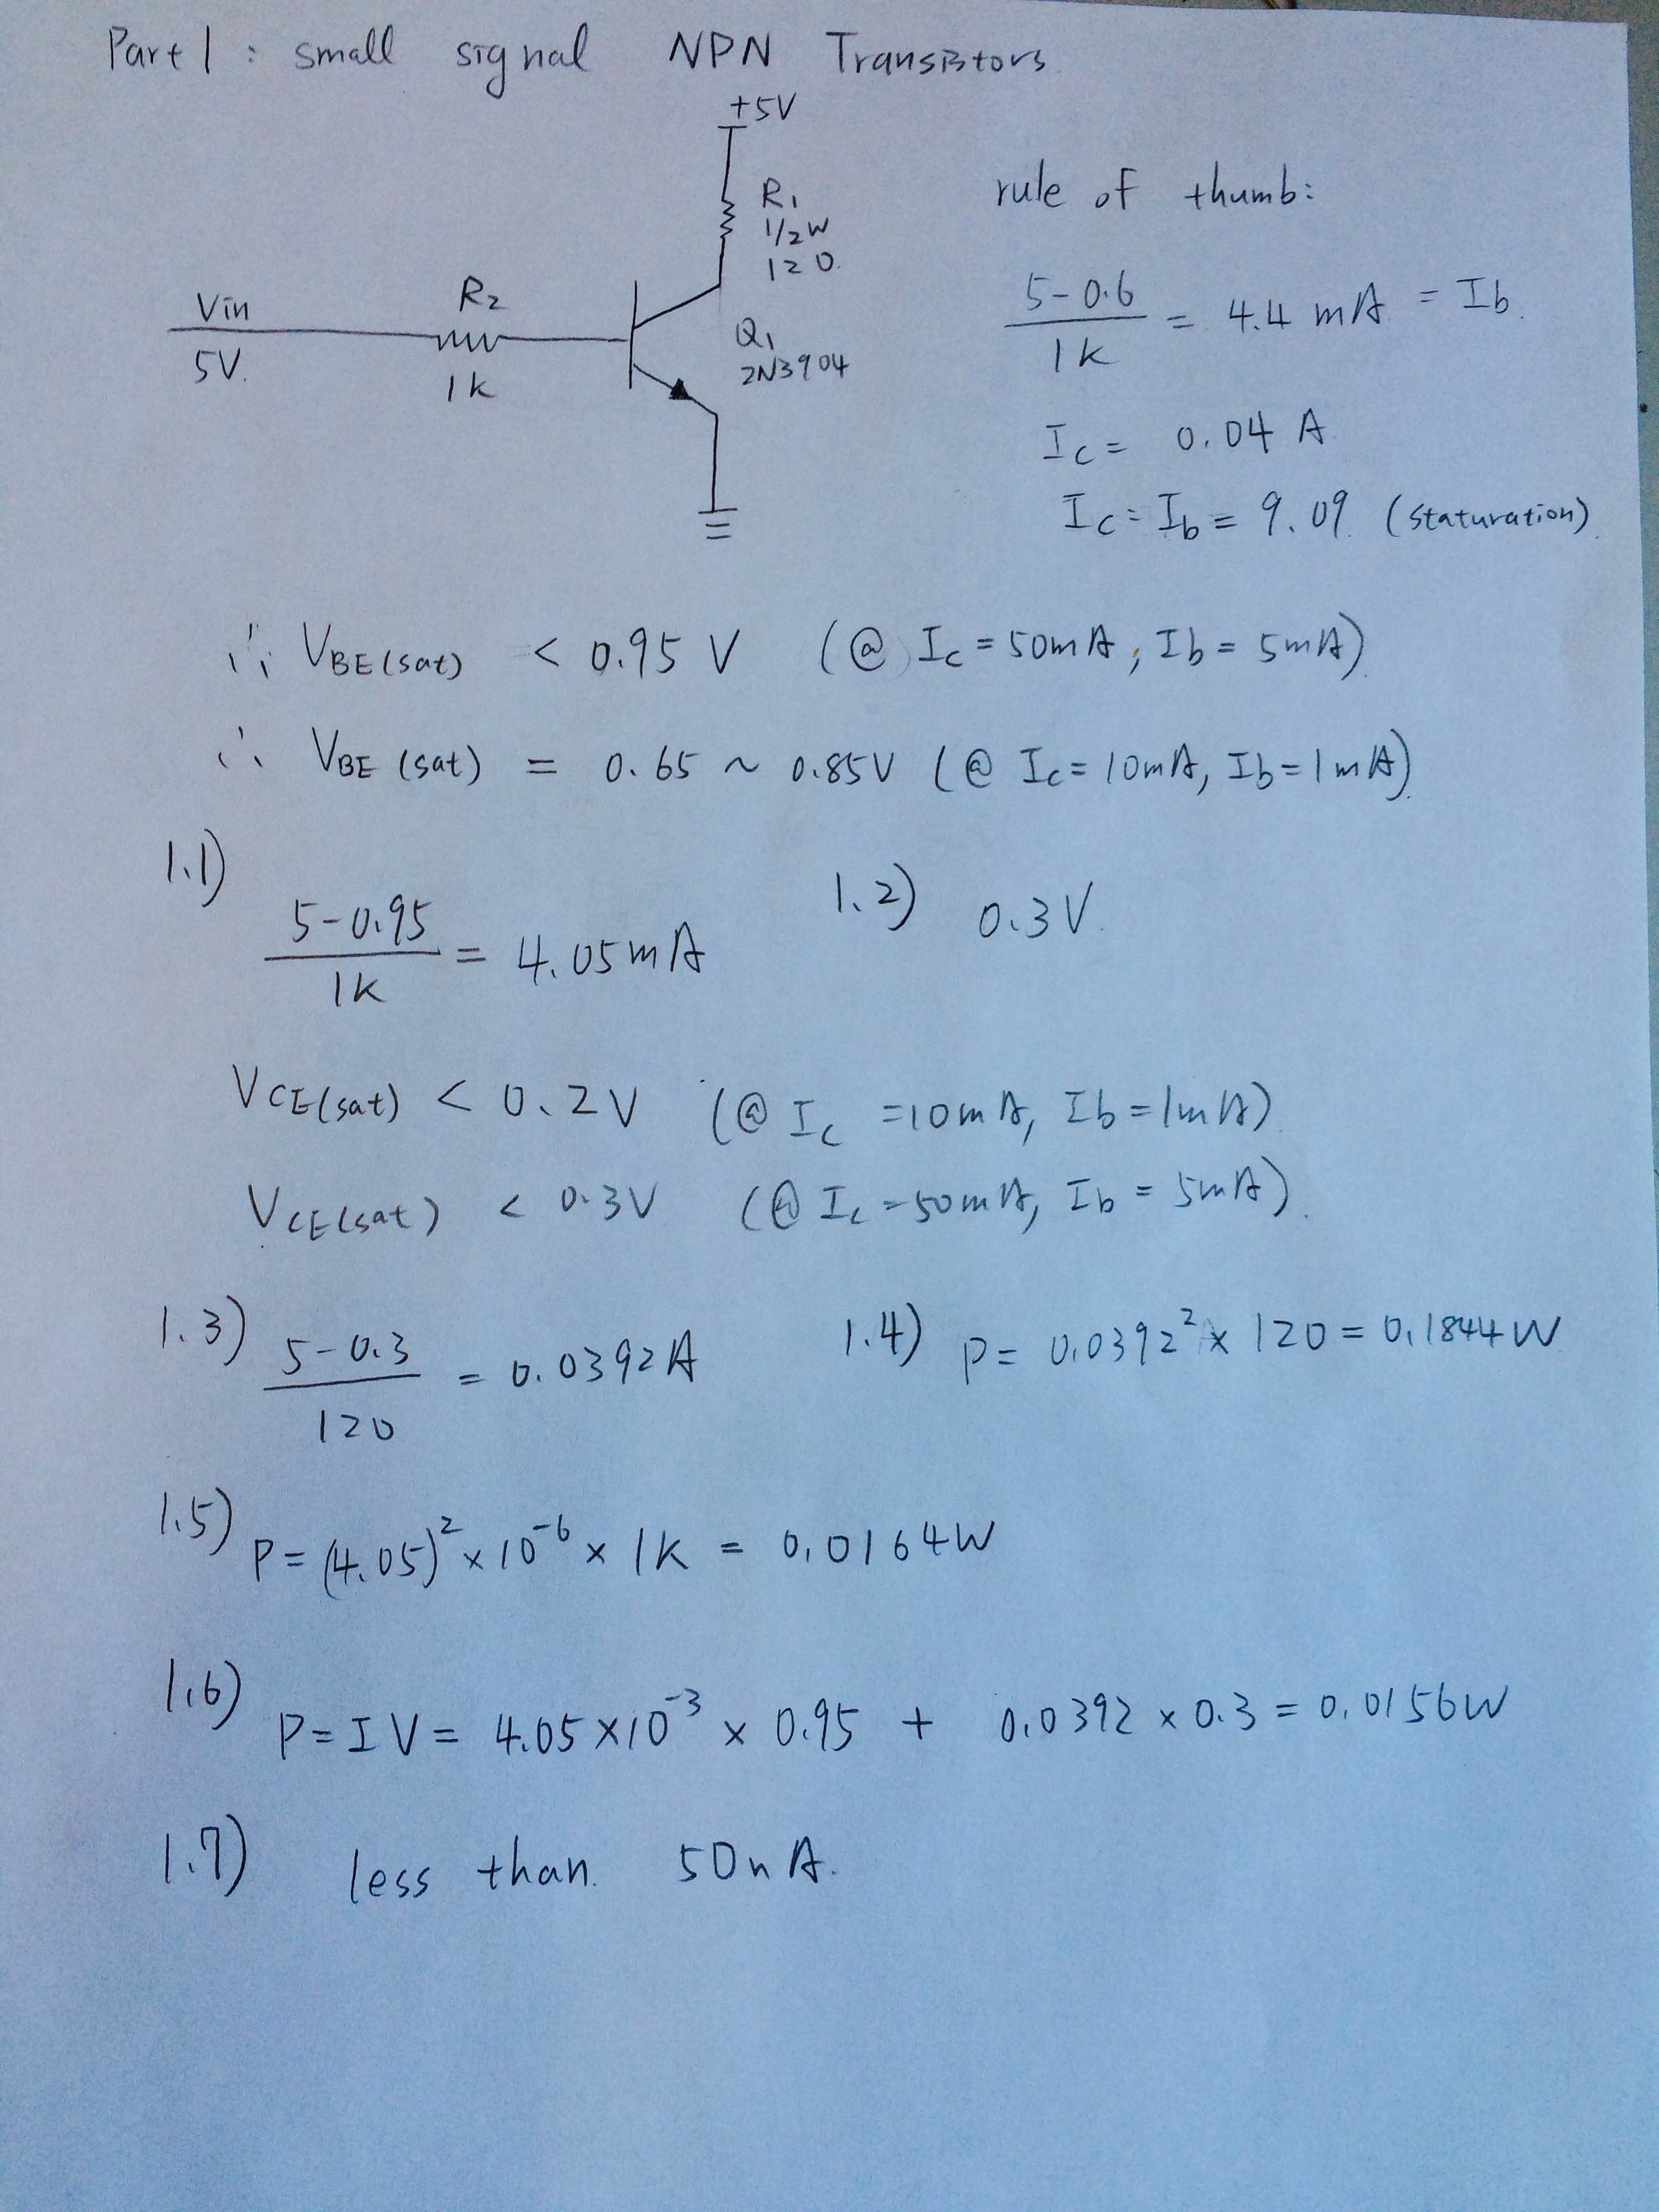 Part 1 : small signal NPN Transistors
+5V
R1
1/2W
120
rule of thumb:
Vin
5V.
R2
1k
Q1
2N3904
5-0.6
1K
= 4.4 mA = Ib.
Ic = 0.04 A
Ic = Ib = 9.09 (staturation)
∴ VBE(sat) < 0.95 V (@ Ic = 50mA, Ib = 5mA)
∴ VBE (sat) = 0.65 ~ 0.85V (@ Ic = 10mA, Ib = 1mA)
1.1)
5-0.95
1K
= 4.05mA
1.2) 0.3V.
VCE(sat) < 0.2V (@ Ic =10mA, Ib = 1mA)
VCE(sat) < 0.3V (@ Ic =50mA, Ib = 5mA).
1.3)
5-0.3
120
= 0.0392A
1.4) P= 0.0392² x 120 = 0.1844W
1.5) P= (4.05)² x 10⁻⁶ x 1K = 0.0164W
1.6) P= IV = 4.05 x10⁻³ x 0.95 + 0.0392 x 0.3 = 0.0156W
1.7) less than. 50nA.